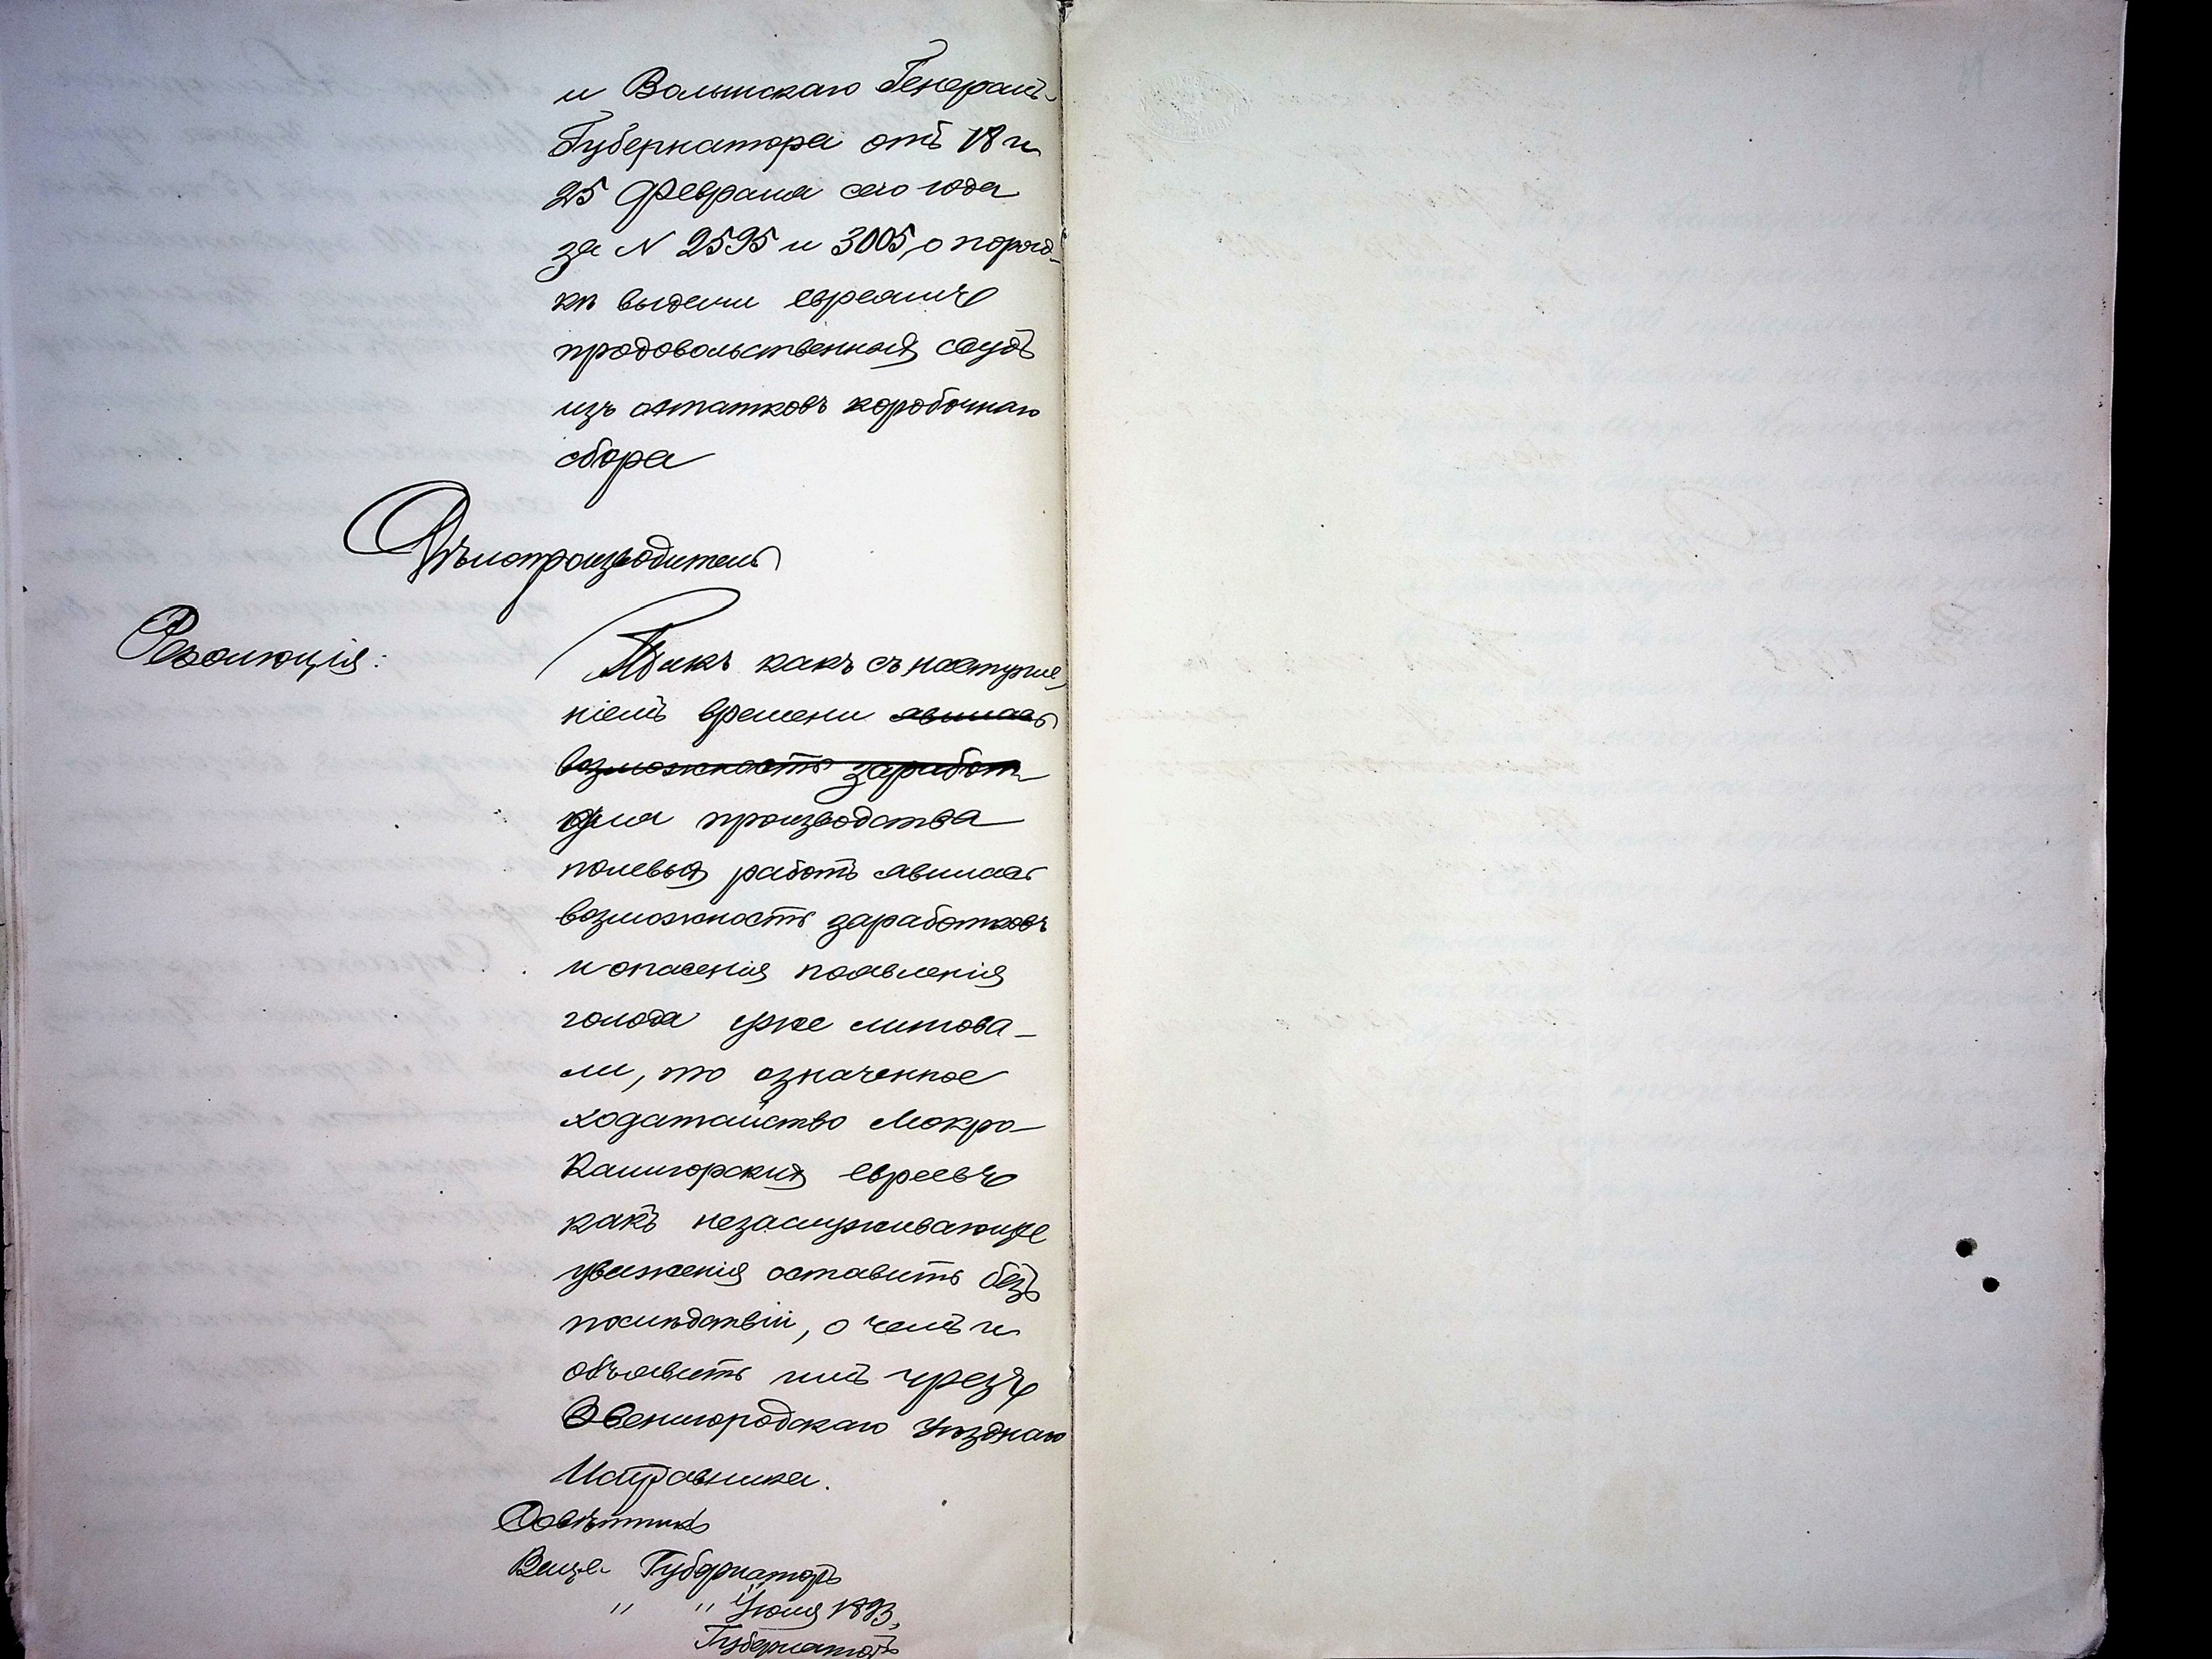 и Волынскаго Генералъ-
Губернатора отъ 18 и
25 Февраля сего года
за N 2595 и 3005, о поряд-
кѣ выдачи евреямъ
продовольственныхъ ссудъ
изъ остатковъ коробочнаго
сбора
Дѣлопроизводитель
Резолюція:
Такъ какъ съ наступле,
ніемъ времени явилась
возможность заработ
для производства
полевыхъ работъ явилась
возможность заработковъ
и опасенія появленія
голода уже минова-
ли, то означенное
ходатайство Мокро-
Калигорскихъ евреевъ
какъ незаслуживающее
уваженія оставить безъ
послѣдствій, о чемъ и
объявить имъ чрезъ
Звенигородскаго Уѣзднаго
Исправника.
Совѣтникъ
Вице Губернаторъ
" " Іюля 1893,
Губернаторъ